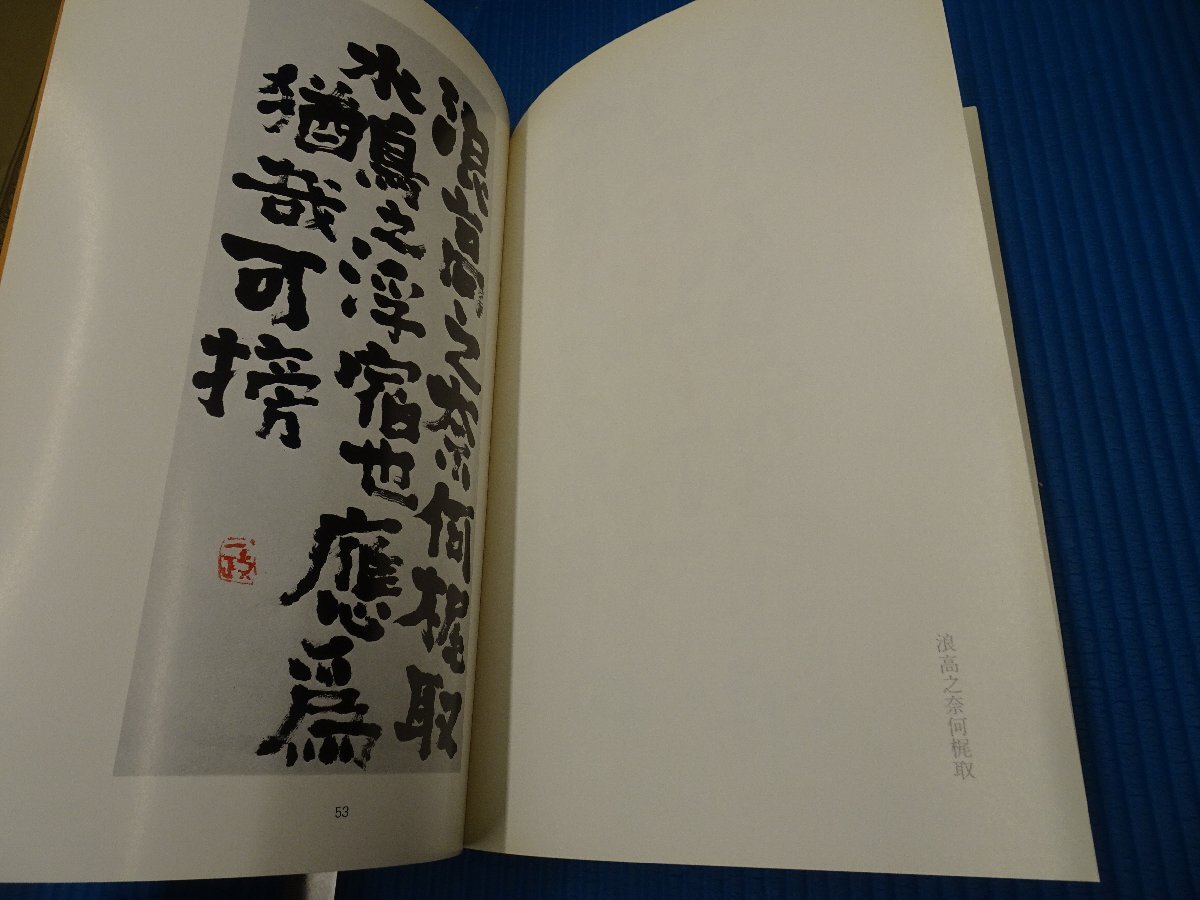 浪高之奈何梶取
水鳥之浮宿也應為
猶哉可搒
53
浪高之奈何梶取